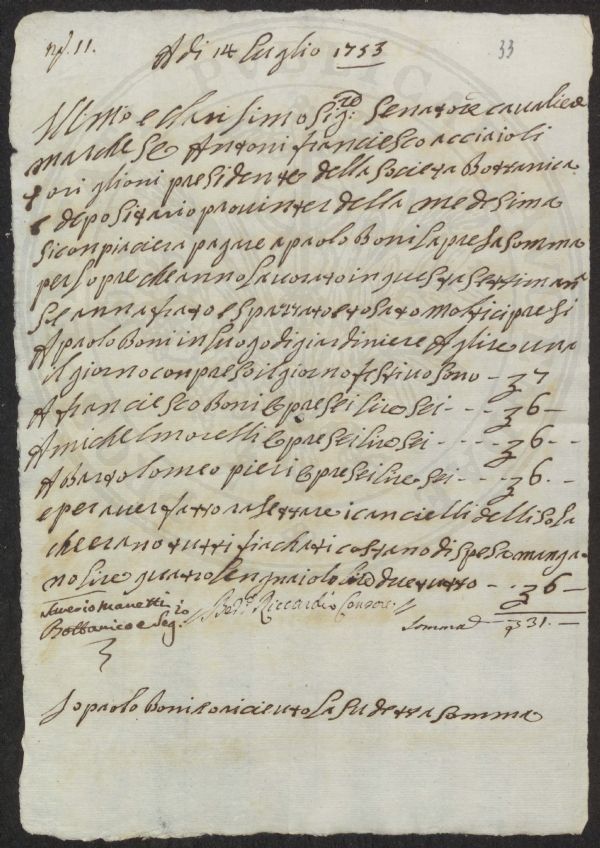 n.° 11.
A di 14 luglio 1753
33
Ill:mo e clarisimo Sig:re Senatore cavaliere
marchese Antoni franciesco acciaioli
toriglioni presidente della Societa Bottanica
e depositario provinter della medesima
si conpiaciera pagare a paolo Boni la presa somma
per lopre che anno lavorato in questa settimana
Se annafiato e spazzato e tosato mortici presi
A paolo Boni in luogo di giardiniere A lire una
il giorno conpreso il giorno festivo sono - 7
A franciesco Boni 6 pre sei lire sei - - - 6 -
A michel moretti 6 pre sei lire sei - - - 6 - -
A Bartolomeo pieri 6 pre sei lire sei - - - 6 - -
e per aver fatto rasettare i cancielli dellisola
che erano tutti fiachati costano di spesa manga-
no lire quatro legnaiolo lire due tutto - - 6 -
Saverio Manetti
Bottanico e Seg.rio
Bed. Riccardi Consore
Somma - 31. -
Io paolo Boni o riceuto la sudetta somma